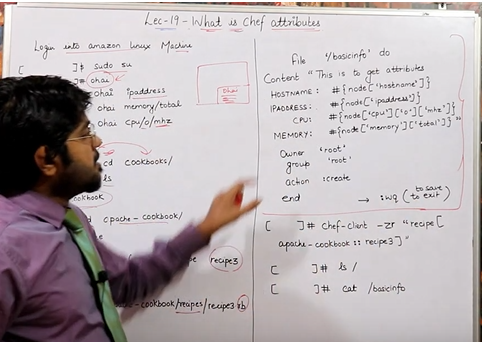 Lec-19 - What is Chef attributes
Login into amazon linux Machine
[ ]$ sudo su
]# ohai
ohai ipaddress
ohai memory/total
ohai cpu/0/mhz
ohai
ls
cd cookbooks/
cookbook
apache-cookbook/
recipe3
-cookbook/recipes/recipe3.rb
File '/basicinfo' do
Content "This is to get attributes
HOSTNAME: #{node['hostname']}
IPADDRESS: #{node['ipaddress']}
CPU: #{node['cpu']['0']['mhz']}
MEMORY: #{node['memory']['total']}"
Owner 'root'
group 'root'
action :create
end → :wq (to save to exit)
[ ]# Chef-client -zr "recipe[
apache-cookbook::recipe3]"
[ ]# ls /
[ ]# cat /basicinfo